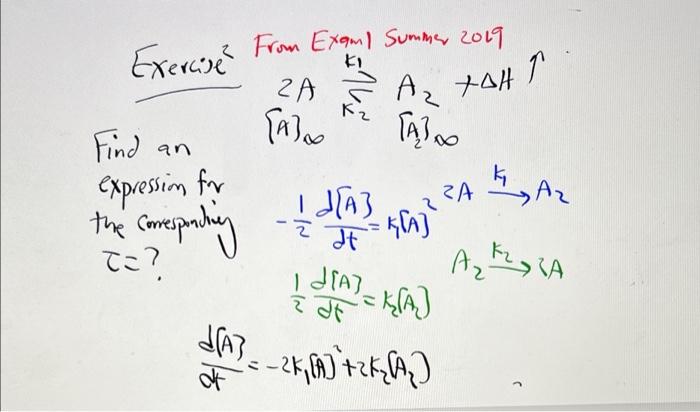 Exercise 2 From Exam 1 Summer 2019
2A ⇌ A₂ + ΔH ↑
k1
k2
[A]∞ [A₂]∞
Find an
expression for
the corresponding
τ = ?
-1/2 d[A]/dt = k₁[A]² 2A →k₁ A₂
1/2 d[A]/dt = k₂[A₂] A₂ →k₂ 2A
d[A]/dt = -2k₁[A]² + 2k₂[A₂]